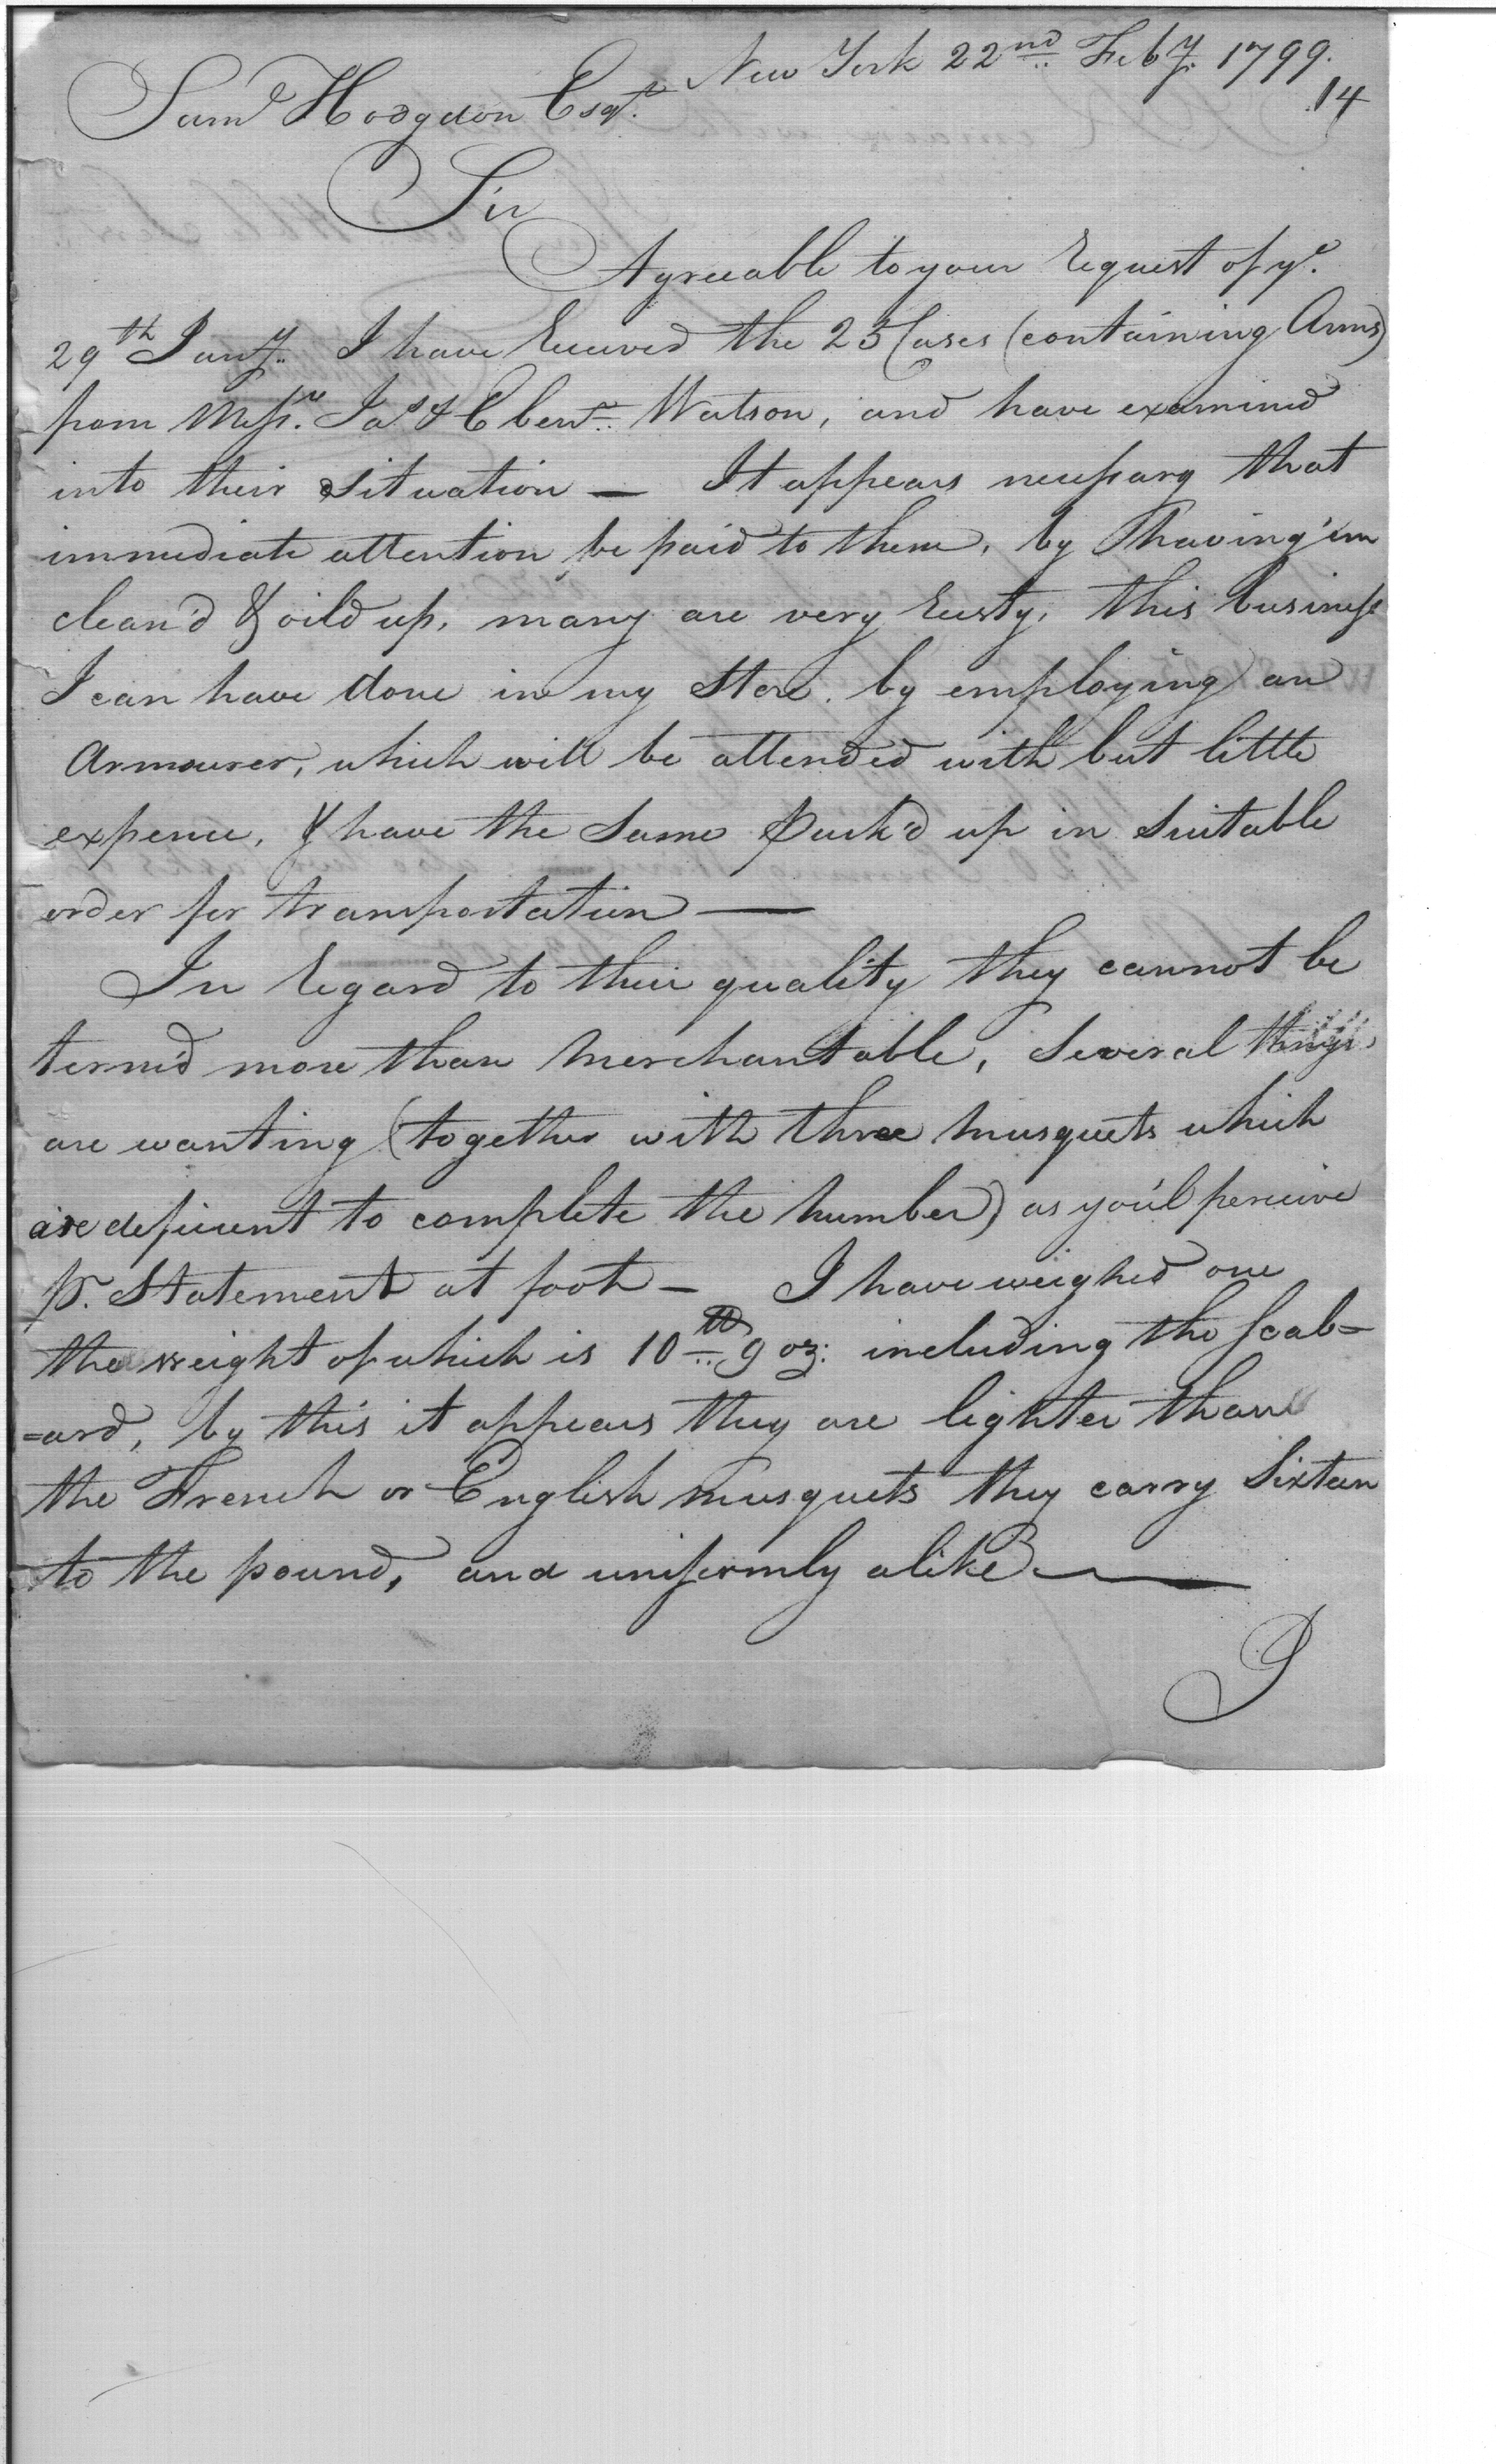 New York 22nd Feby. 1799.
14
Saml Hodgdon Esqr.
Sir
Agreeable to your Request of ye.
29th Jany. I have Received the 25 Cases (containing Arms)
from Messrs. Jas & Ebenr. Watson, and have examined
into their situation — It appears necessary that
immediate attention be paid to them, by having 'em
clean'd & oild up, many are very Rusty, this business
I can have done in my Store. by employing an
Armourer, which will be attended with but little
expence, & have the same Pack'd up in Suitable
order for transportation —
In Regard to their quality they cannot be
term'd more than Merchantable, Several things
are wanting (together with three Musquets which
are deficient to complete the Number) as you'l perceive
pr. Statement at foot — I have weighed one
the weight of which is 10 lb 9 oz: including the Scab=
=ard, by this it appears they are lighter than
the French or English Musquets they carry Sixteen
to the pound, and uniformly alike —